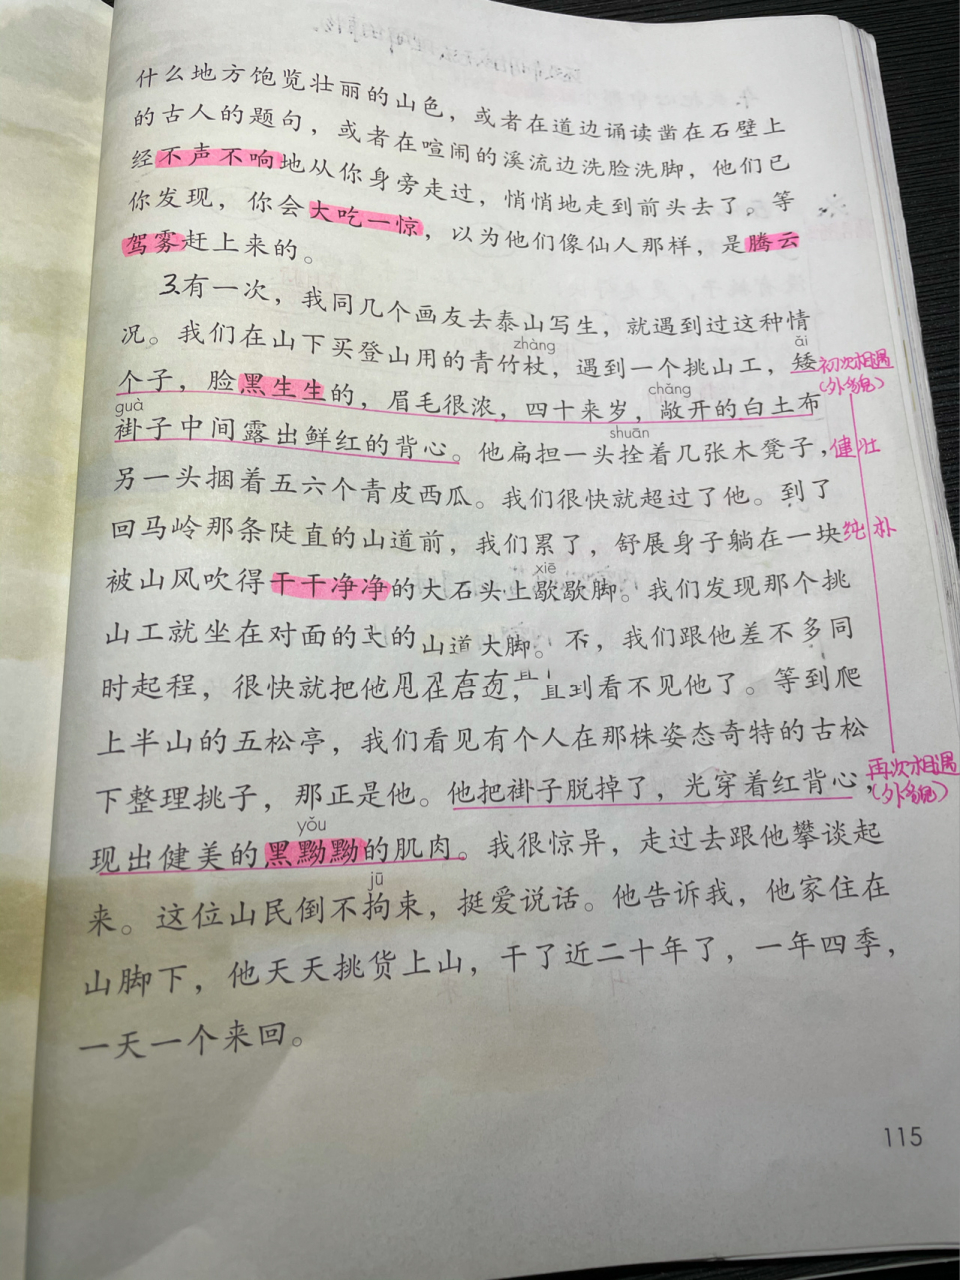 什么地方饱览壮丽的山色，或者在道边诵读凿在石壁上
的古人的题句，或者在喧闹的溪流边洗脸洗脚，他们已
经不声不响地从你身旁走过，悄悄地走到前头去了。等
你发现，你会大吃一惊，以为他们像仙人那样，是腾云
驾雾赶上来的。
3.有一次，我同几个画友去泰山写生，就遇到过这种情
zhàng ǎi
况。我们在山下买登山用的青竹杖，遇到一个挑山工，矮初次相遇
chǎng （外貌）
个子，脸黑生生的，眉毛很浓，四十来岁，敞开的白土布
guà shuān
褂子中间露出鲜红的背心。他扁担一头拴着几张木凳子，健壮
另一头捆着五六个青皮西瓜。我们很快就超过了他。到了
回马岭那条陡直的山道前，我们累了，舒展身子躺在一块纯朴
xiē
被山风吹得干干净净的大石头上歇歇脚。我们发现那个挑
山工就坐在对面的 的山道 脚。不，我们跟他差不多同
时起程，很快就把他 ，直到看不见他了。等到爬
上半山的五松亭，我们看见有个人在那株姿态奇特的古松
下整理挑子，那正是他。他把褂子脱掉了，光穿着红背心，再次相遇
yǒu （外貌）
现出健美的黑黝黝的肌肉。我很惊异，走过去跟他攀谈起
jū
来。这位山民倒不拘束，挺爱说话。他告诉我，他家住在
山脚下，他天天挑货上山，干了近二十年了，一年四季，
一天一个来回。
115